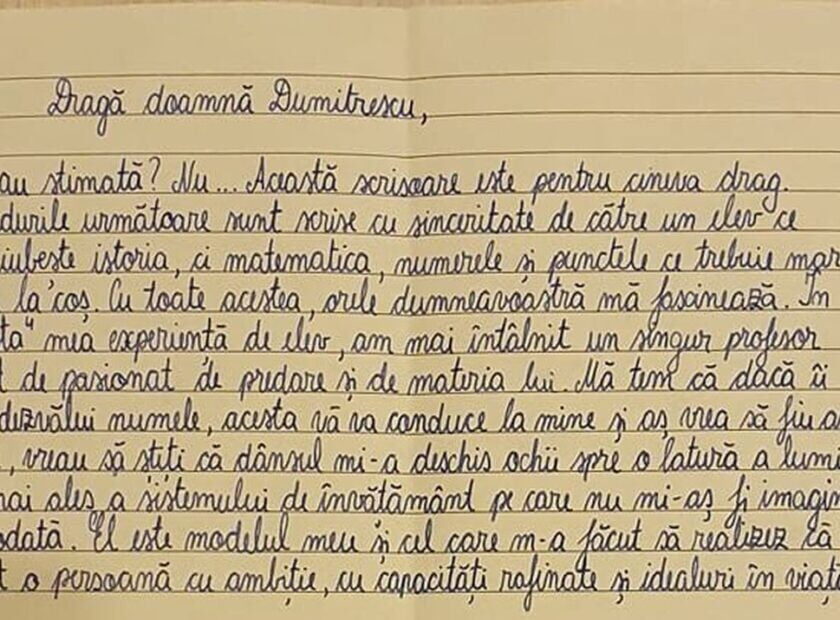 Dragă doamnă Dumitrescu,
au stimată? Nu... Această scrisoare este pentru cineva drag.
durile următoare sunt scrise cu sinceritate de către un elev ce
iubește istoria, ci matematica, numerele și punctele ce trebuie mar
la coș. Cu toate acestea, orele dumneavoastră mă fascinează. În
ta" mea experiență de elev, am mai întâlnit un singur profesor
t de pasionat de predare și de materia lui. Mă tem că dacă îi
dezvălui numele, acesta vă va conduce la mine și aș vrea să fiu an
, vreau să știți că dânsul mi-a deschis ochii spre o latură a lumi
mai ales a sistemului de învățământ pe care nu mi-aș fi imagin
odată. El este modelul meu și cel care m-a făcut să realizez că
t o persoană cu ambiție, cu capacități rafinate și idealuri în viaț